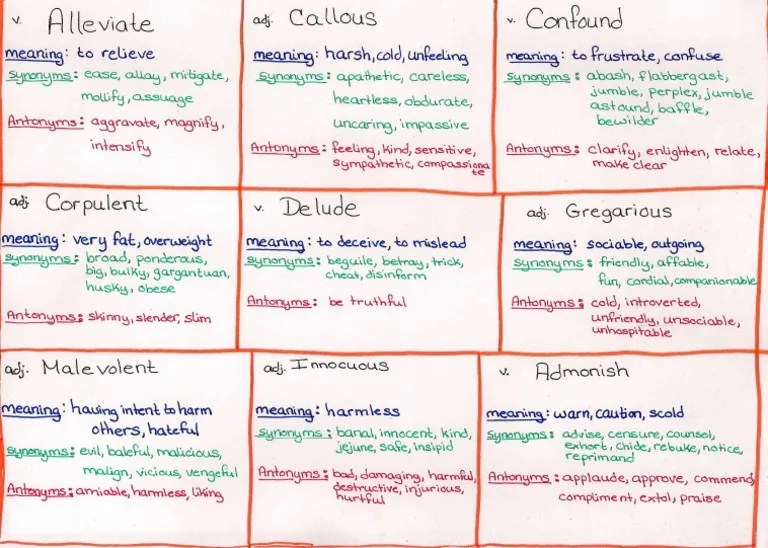 v. Alleviate
meaning: to relieve
synonyms: ease, allay, mitigate,
mollify, assuage
Antonyms: aggravate, magnify,
intensify
adj. Callous
meaning: harsh, cold, unfeeling
synonyms: apathetic, careless,
heartless, obdurate,
uncaring, impassive
Antonyms: feeling, kind, sensitive,
sympathetic, compassiona
te
v. Confound
meaning: to frustrate, confuse
synonyms: abash, flabbergast,
jumble, perplex, jumble
astound, baffle,
bewilder
Antonyms: clarify, enlighten, relate,
make clear
adj. Corpulent
meaning: very fat, overweight
synonyms: broad, ponderous,
big, bulky, gargantuan,
husky, obese
Antonyms: skinny, slender, slim
v. Delude
meaning: to deceive, to mislead
synonyms: beguile, betray, trick,
cheat, disinform
Antonyms: be truthful
adj. Gregarious
meaning: sociable, outgoing
synonyms: friendly, affable,
fun, cordial, companionable
Antonyms: cold, introverted,
unfriendly, unsociable,
unhospitable
adj. Malevolent
meaning: having intent to harm
others, hateful
synonyms: evil, baleful, malicious,
malign, vicious, vengeful
Antonyms: amiable, harmless, liking
adj. Innocuous
meaning: harmless
synonyms: banal, innocent, kind,
jejune, safe, insipid
Antonyms: bad, damaging, harmful,
destructive, injurious,
hurtful
v. Admonish
meaning: warn, caution, scold
synonyms: advise, censure, counsel,
exhort, chide, rebuke, notice,
reprimand
Antonyms: applaude, approve, commend,
compliment, extol, praise